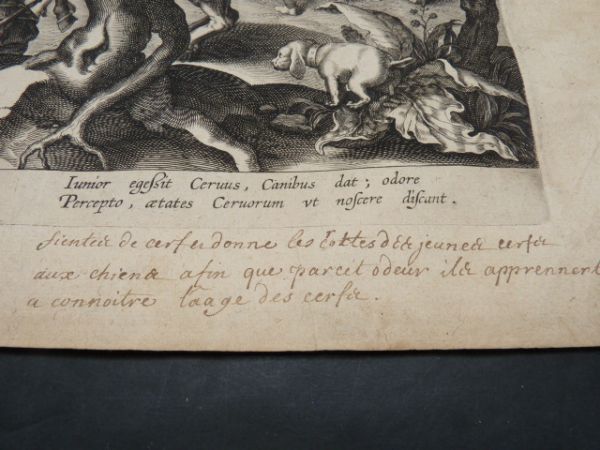 Iunior egeſsit Ceruus, Canibus dat; odore
Percepto, ætates Ceruorum vt noſcere diſcant.
fientes de cerfs donne les crottes des jeunes cerfs
aux chiens afin que par cet odeur ils apprennent
a connoitre laage des cerfs.